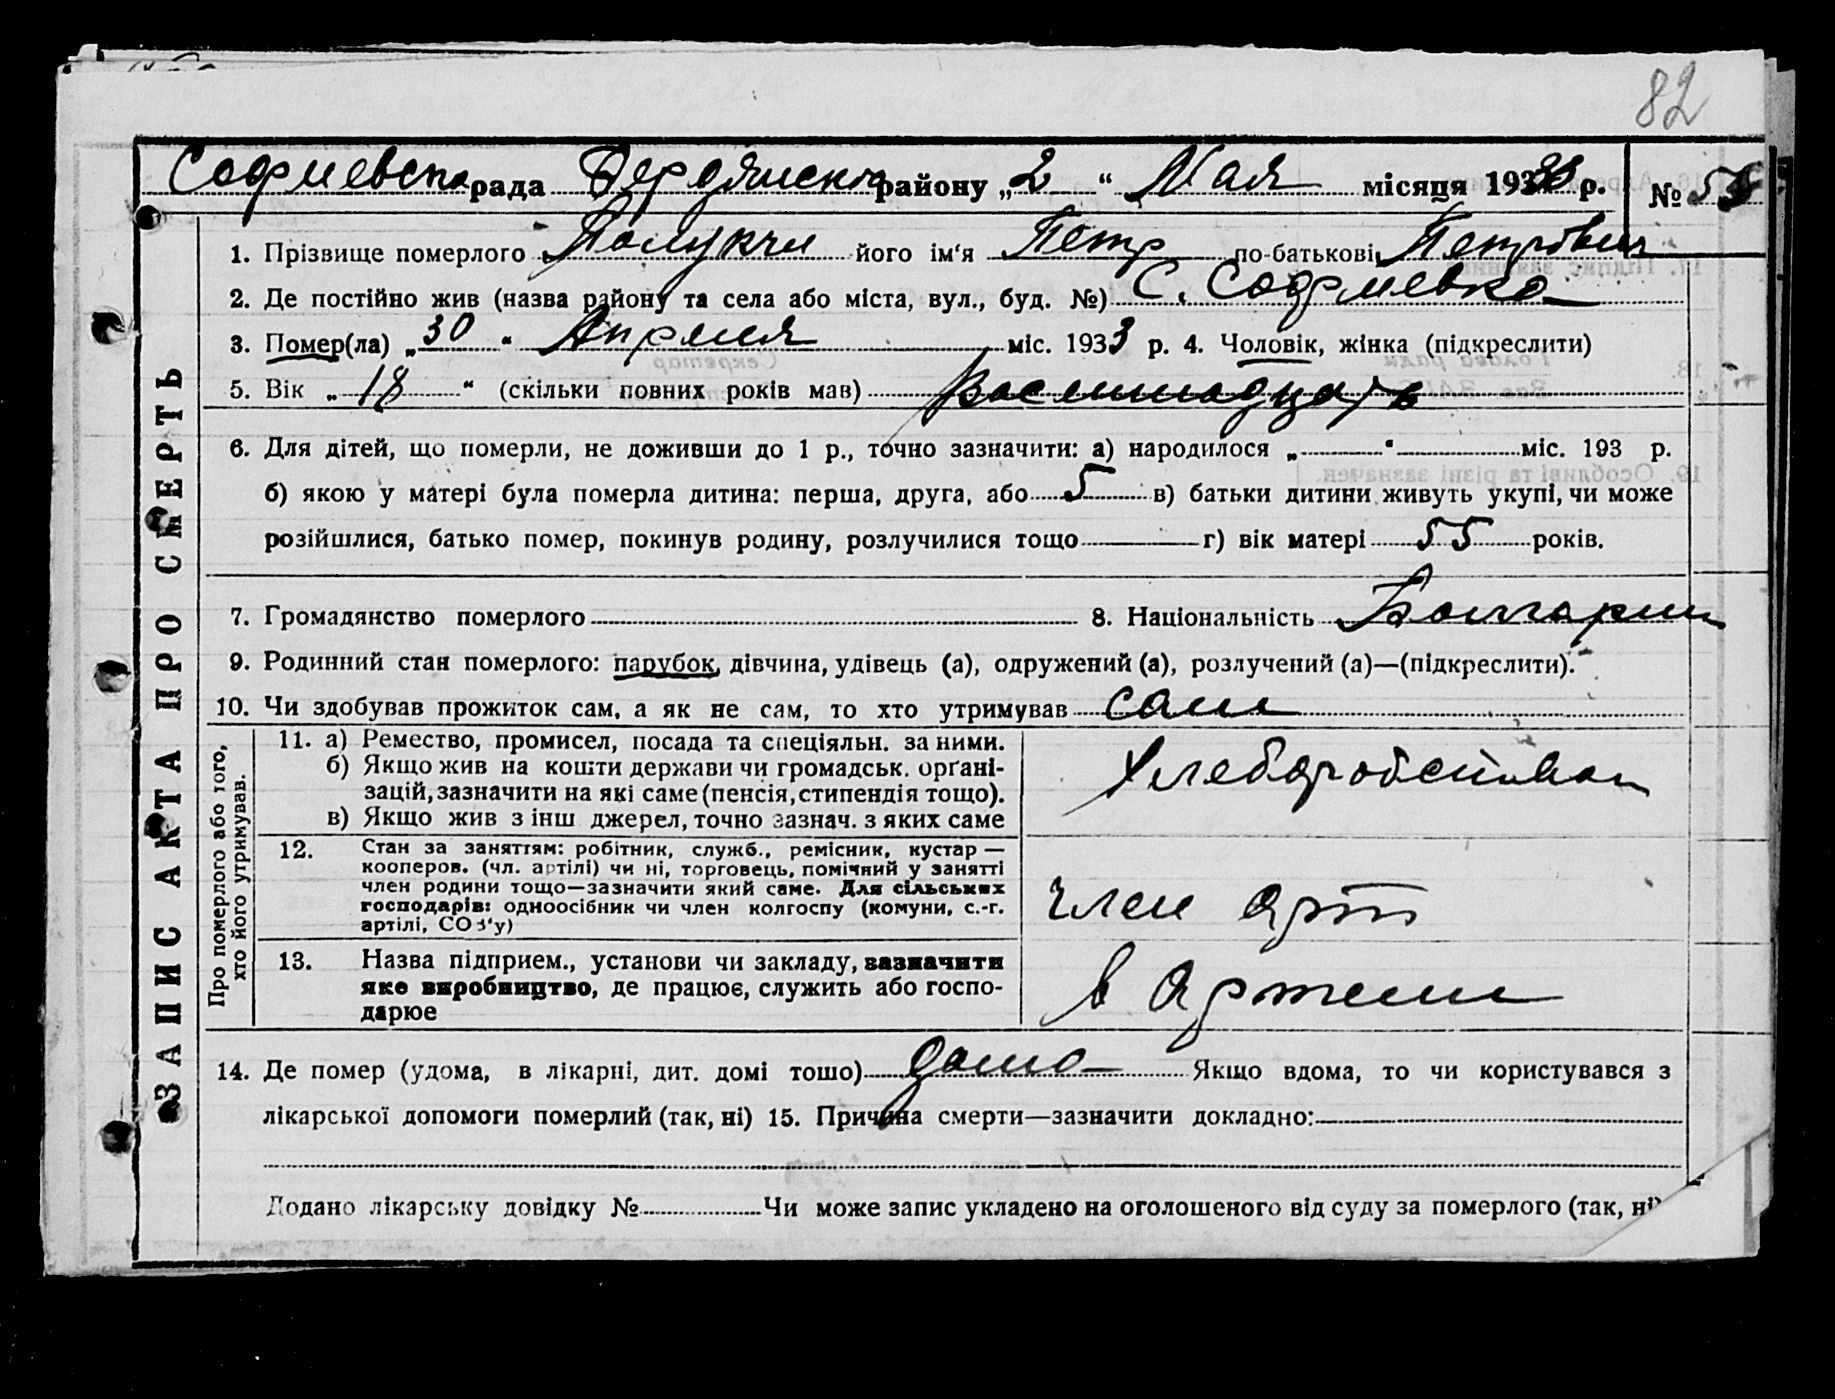 82
Софиевска рада Бердянски району „2“ Мая місяця 1933 р. №
1. Прізвище померлого Палукчи його ім‘я Петр по-батькові Петрович
2. Де постійно жив (назва району та села або міста, вул., буд. №) С. Софиевка
3. Помер(ла) „30“ Апреля міс. 1933 р. 4. Чоловік, жінка (підкреслити)
5. Вік „18“ (скільки повних років мав) Восемнадцать
6. Для дітей, що померли, не доживши до 1 р., точно зазначити: а) народилося „ “ міс. 193 р.
б) якою у матері була померла дитина: перша, друга, або 5 в) батьки дитини живуть укупі, чи може
розійшлися, батько помер, покинув родину, розлучилися тощо г) вік матері 55 років.
7. Громадянство померлого 8. Національність Болгарин
9. Родинний стан померлого: парубок, дівчина, удівець (а), одружений (а), розлучений (а)—(підкреслити).
10. Чи здобував прожиток сам, а як не сам, то хто утримував сам
ЗАПИС АКТА ПРО СМЕРТЬ
Про померлого або того,
хто його утримував.
11. а) Ремество, промисел, посада та спеціяльн. за ними.
б) Якщо жив на кошти держави чи громадськ. орґані-
зацій, зазначити на які саме (пенсія, стипендія тощо).
в) Якщо жив з інш джерел, точно зазнач. з яких саме
12. Стан за заняттям: робітник, служб., ремісник, кустар —
кооперов. (чл. артілі) чи ні, торговець, помічний у занятті
член родини тощо—зазначити який саме. Для сільських
господарів: одноосібник чи член колгоспу (комуни, с.-г.
артілі, СОЗ‘у)
член арт
13. Назва підприєм., установи чи закладу, зазначити
яке виробництво, де працює, служить або госпо-
дарює
в Артели
14. Де помер (удома, в лікарні, дит. домі тошо) дома Якщо вдома, то чи користувався з
лікарської допомоги померлий (так, ні) 15. Причина смерти—зазначити докладно:
Додано лікарську довідку № Чи може запис укладено на оголошеного від суду за померлого (так, ні)